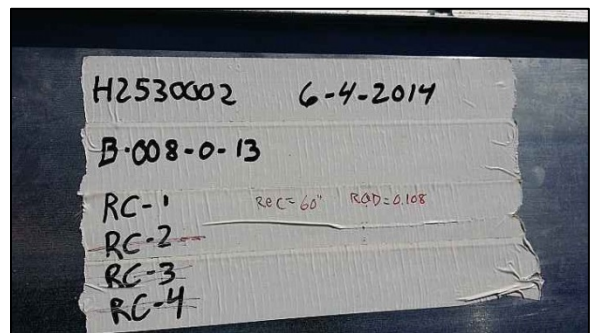 H2530002 6-4-2014
B-008-0-13
RC-1 Rec=60" RQD=0.108
RC-2
RC-3
RC-4